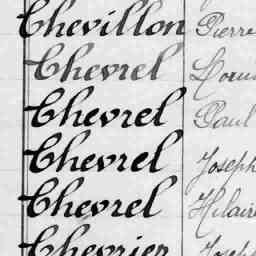 Chevillon Pierre
Chevrel Louis
Chevrel Paul
Chevrel Joseph
Chevrel Hilaire
Chevrier Joseph